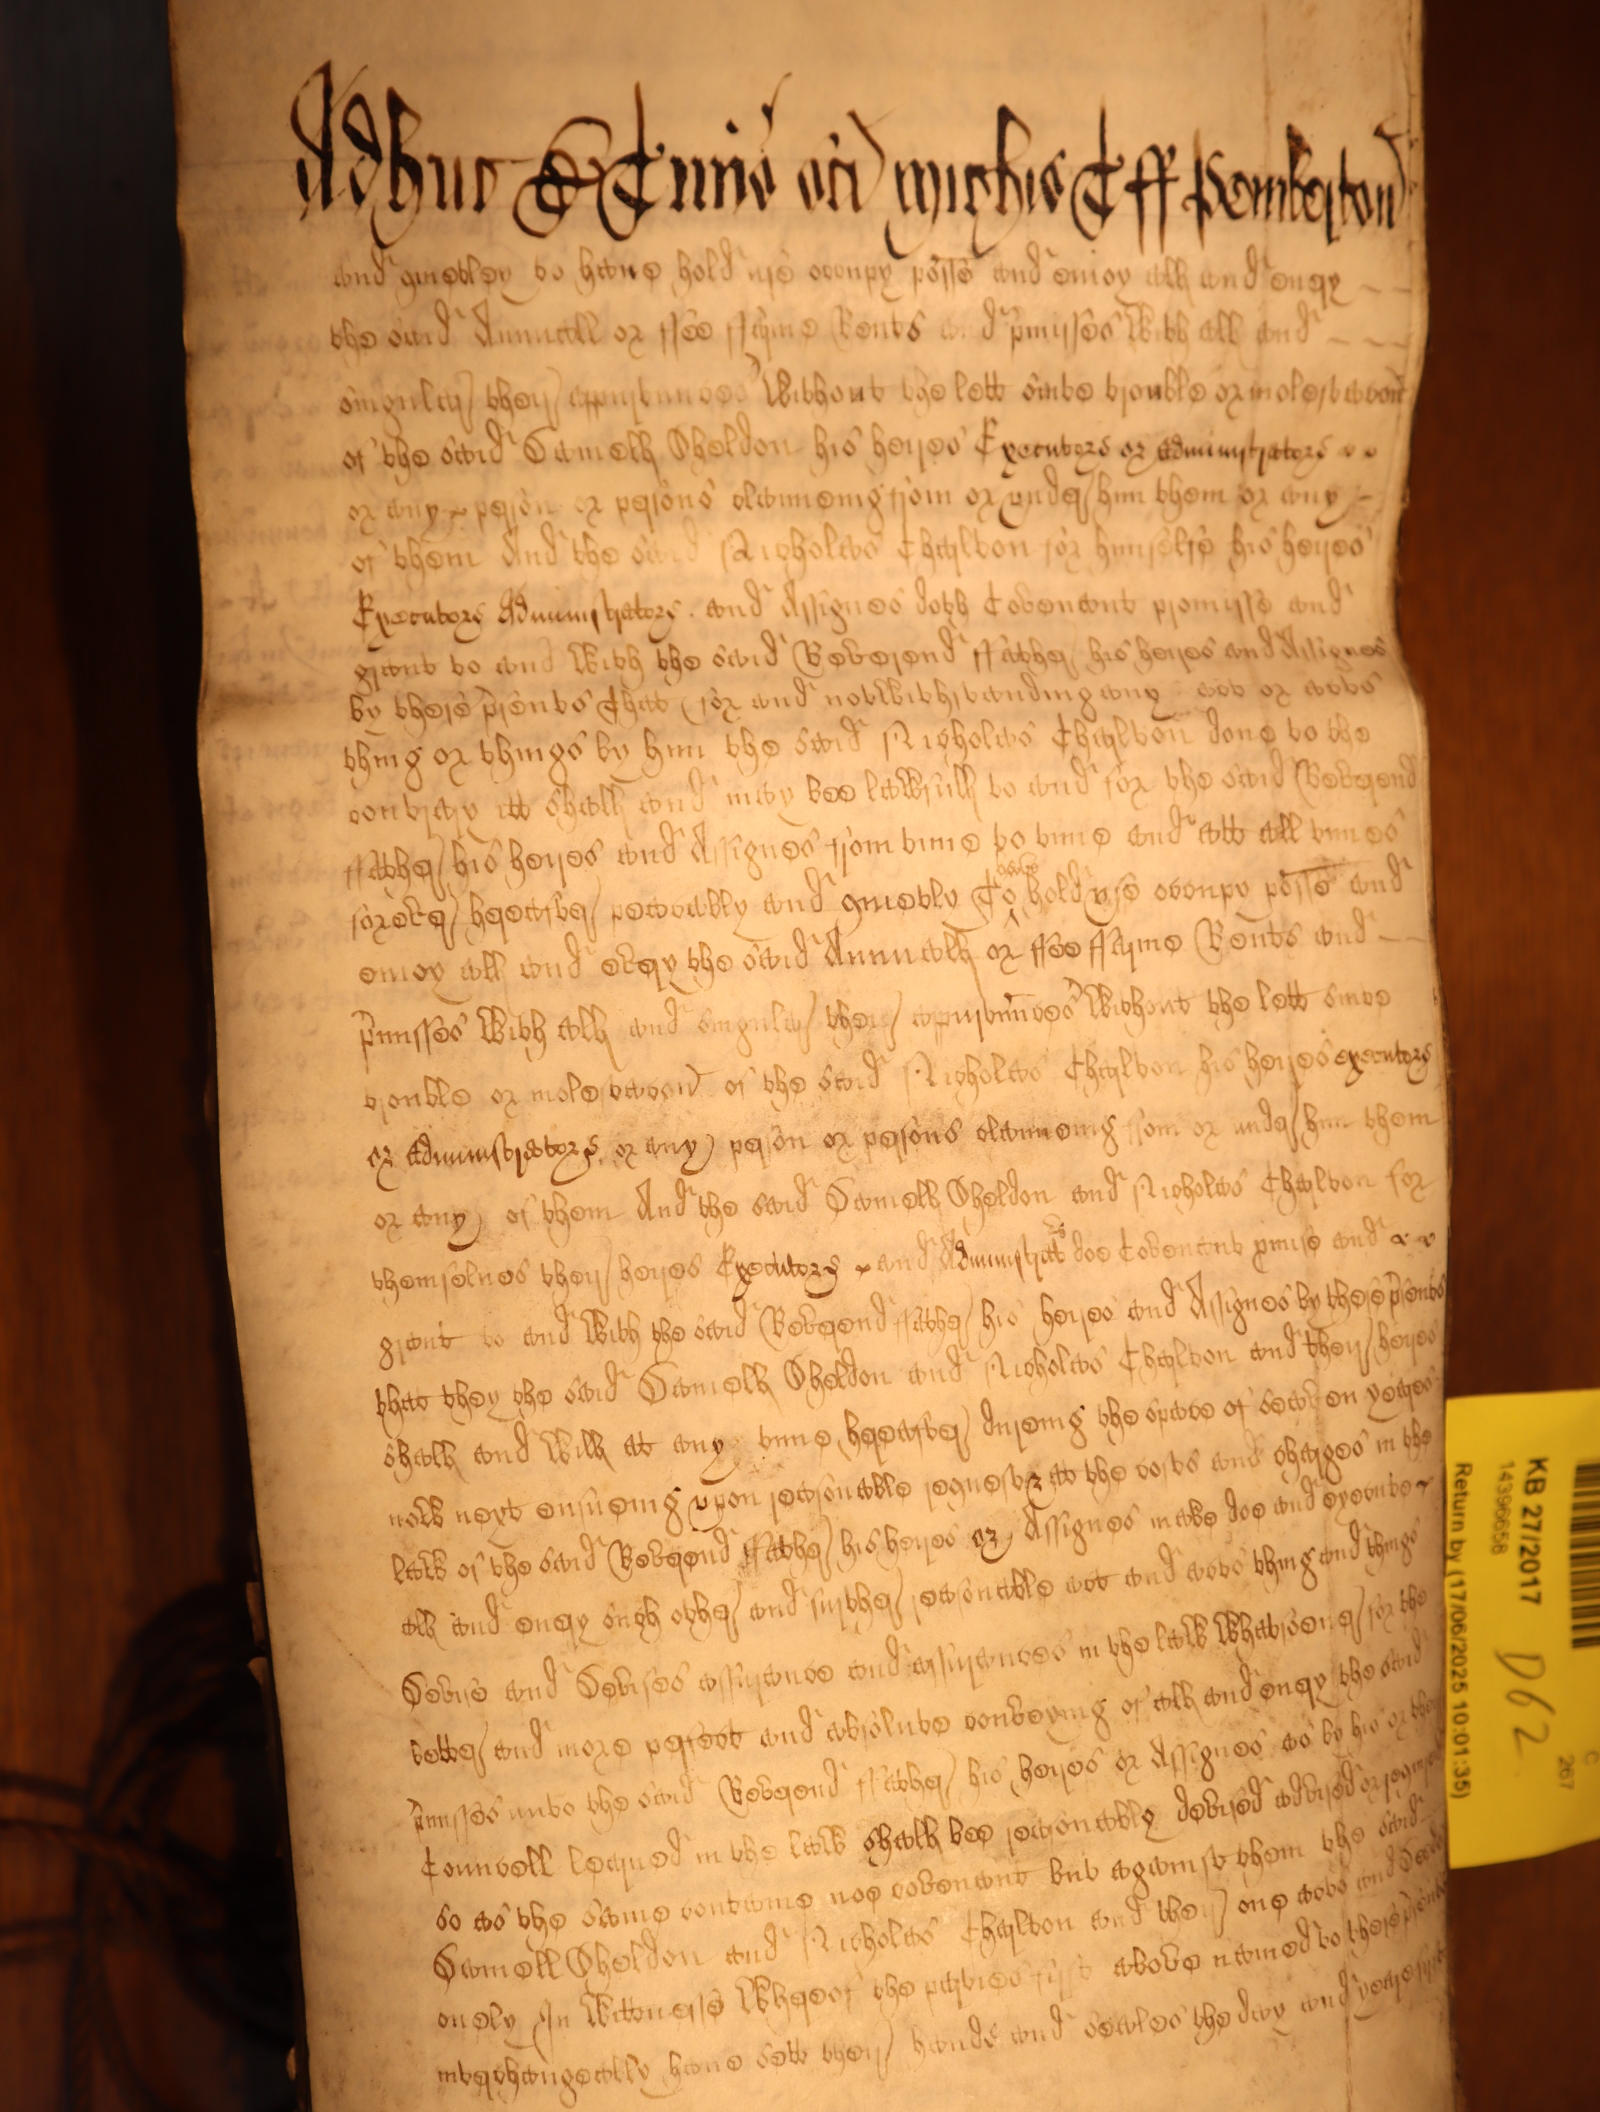 Adhuc de Termino sci Michis T ff Pemberton
and quietley to haue hold use occupy posse and enioy all and euery
the said Annuall or ffee ffarme Rents and pmisses With all and
singular their appurtunces Without the lett suite trouble or molestacon
of the said Samuell Sheldon his heires Executors or Administrators
or any person or persons claimeing from or under him them or any
of them And the said Nicholas Charlton for himselfe his heires
Executors Administrators and Assignes doth Covenant promisse and
grant to and With the said Reverend ffather his heires and Assignes
by these psents That for and notWithstanding any act or acts
thing or things by him the said Nicholas Charlton done to the
contrary itt shall and may bee laWfull to and for the said Reverend
ffather his heires and Assignes from time to time and att all times
forever hereafter peaceably and quietly To haue hold use occupy posse and
enioy all and every the said Annuall or ffee ffarme Rents and
pmisses With all and singular their appurtunces Without the lett suite
trouble or molestacon of the said Nicholas Charlton his heires executors
or administrators or any person or persons claimeing from or under him them
or any of them And the said Samuell Sheldon and Nicholas Charlton for
themselues their heires Executors and Administrat doe Covenant pmise and
grant to and With the said Reverend ffather his heires and Assignes by these psents
that they the said Samuell Sheldon and Nicholas Charlton and their heires
shall and Will at any time hereafter dureing the space of seaven yeares
noW next ensueing upon reasonable request att the costs and charges in the
laW of the said Reverend ffather his heires or Assignes make doe and execute
all and euery such other and further reasonable act and acts thing and things
Devise and Devises assurance and assurances in the laW Whatsoeuer for the
better and more perfect and absolute conveying of all and euery the said
pmisses unto the said Reverend ffather his heires or Assignes as by his or their
Councell learned in the laW shall bee reasonably devised advised or required
so as the same containe noe covenant but against them the said
Samuell Sheldon and Nicholas Charlton and their one acts and Deeds
onely In Wittnesse Whereof the parties first above named to these psents
interchangeably haue sett their hands and seales the day and yeare first
KB 27/2017
14396658
Return by (17/06/2025 10:01:35)
D62
267